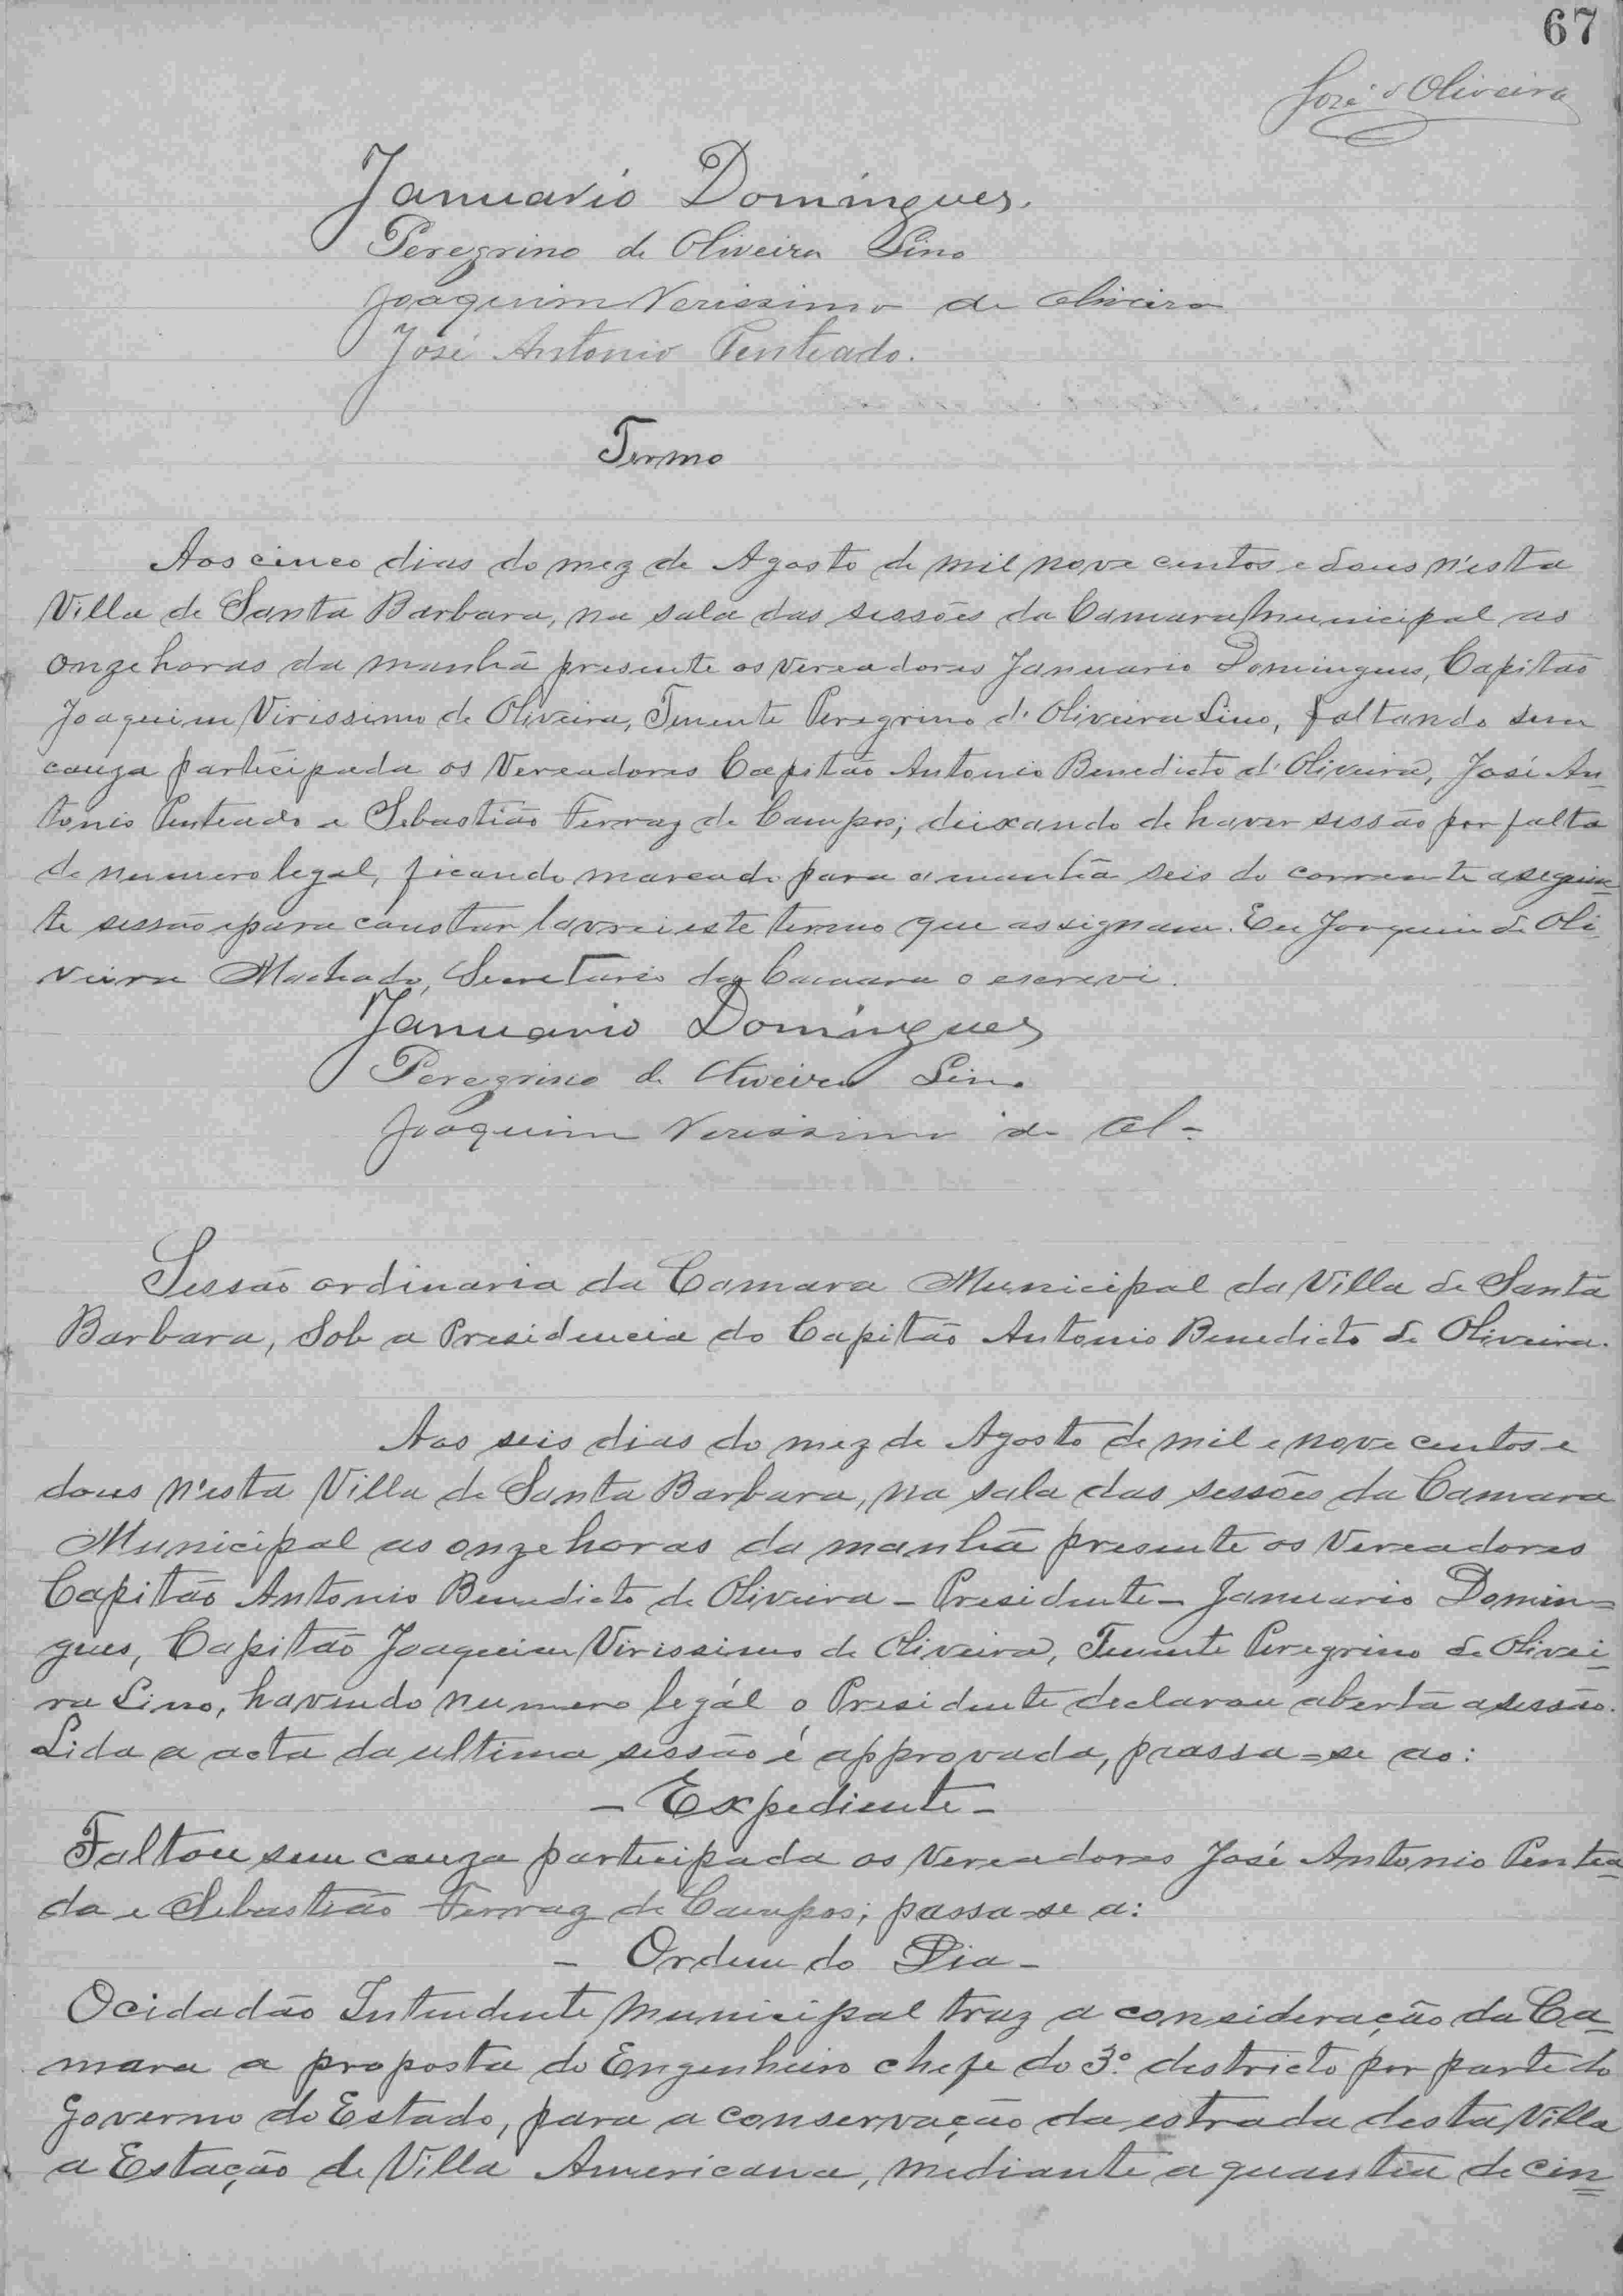 67
José d'Oliveira
Januario Domingues.
Peregrino de Oliveira Lino
Joaquim Verissimo de Oliveira
José Antonio Penteado.
Termo
Aos cinco dias do mez de Agosto de mil nove centos e dous n'esta
Villa de Santa Barbara, na sala das sessões da Camara Municipal as
onze horas da manhã presente os vereadores Januario Domingues, Capitão
Joaquim Virissimo de Oliveira, Tenente Peregrino d'Oliveira Lino, faltando sem
cauza participada os Vereadores Capitão Antonio Benedicto d'Oliveira, José An-
tonio Penteado e Sebastião Ferraz de Campos; deixando de haver sessão por falta
de numero legal, ficando marcado para amanhã seis do corrente a seguin-
te sessão e para constar lavrei este termo que assignam. Eu Joaquim de Oli-
veira Machado, Secretario da Camara o escrevi.
Januario Domingues
Peregrino de Oliveira Lino
Joaquim Verissimo de Ol-
Sessão ordinaria da Camara Municipal da Villa de Santa
Barbara, Sob a Presidencia do Capitão Antonio Benedicto de Oliveira.
Aos seis dias do mez de Agosto de mil e nove centos e
dous n'esta Villa de Santa Barbara, na sala das sessões da Camara
Municipal as onze horas da manhã presente os Vereadores
Capitão Antonio Benedicto de Oliveira - Presidente - Januario Domin=
gues, Capitão Joaquim Virissimo de Oliveira, Tenente Peregrino de Olivei-
ra Lino, havendo numero legál o Presidente declarou aberta a sessão.
Lida a acta da ultima sessão é approvada, passa=se ao:
- Expediente -
Faltou sem cauza participada os Vereadores José Antonio Pentea-
do e Sebastião Ferraz de Campos; passa-se a:
- Ordem do Dia -
O cidadão Intendente Municipal traz a consideração da Ca-
mara a proposta do Engenheiro chefe do 3º destricto por parte do
Governo do Estado, para a conservação da estrada desta Villa
a Estação de Villa Americana, mediante a quantia de cin=